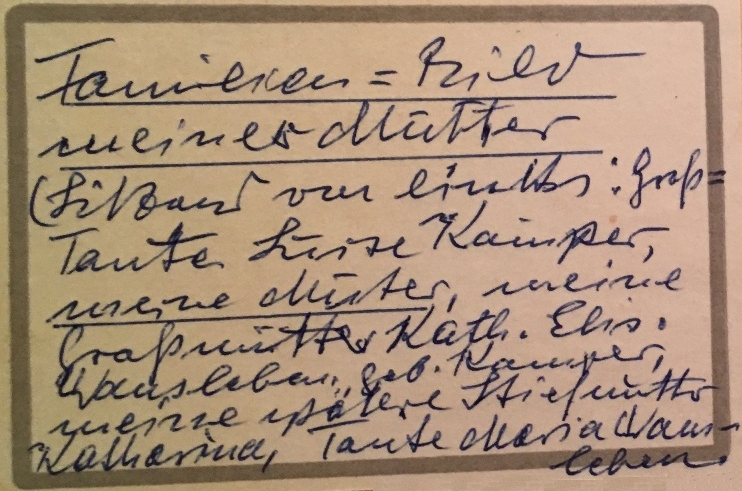 Familien = Bild
meiner Mutter
(Sitzend von links: Groß=
Tante Luise Kamper,
meine Mutter, meine
Großmutter Kath. Elis.
Wansleben, geb. Kamper,
meine spätere Stiefmutter
Katharina, Tante Maria Wans-
leben.